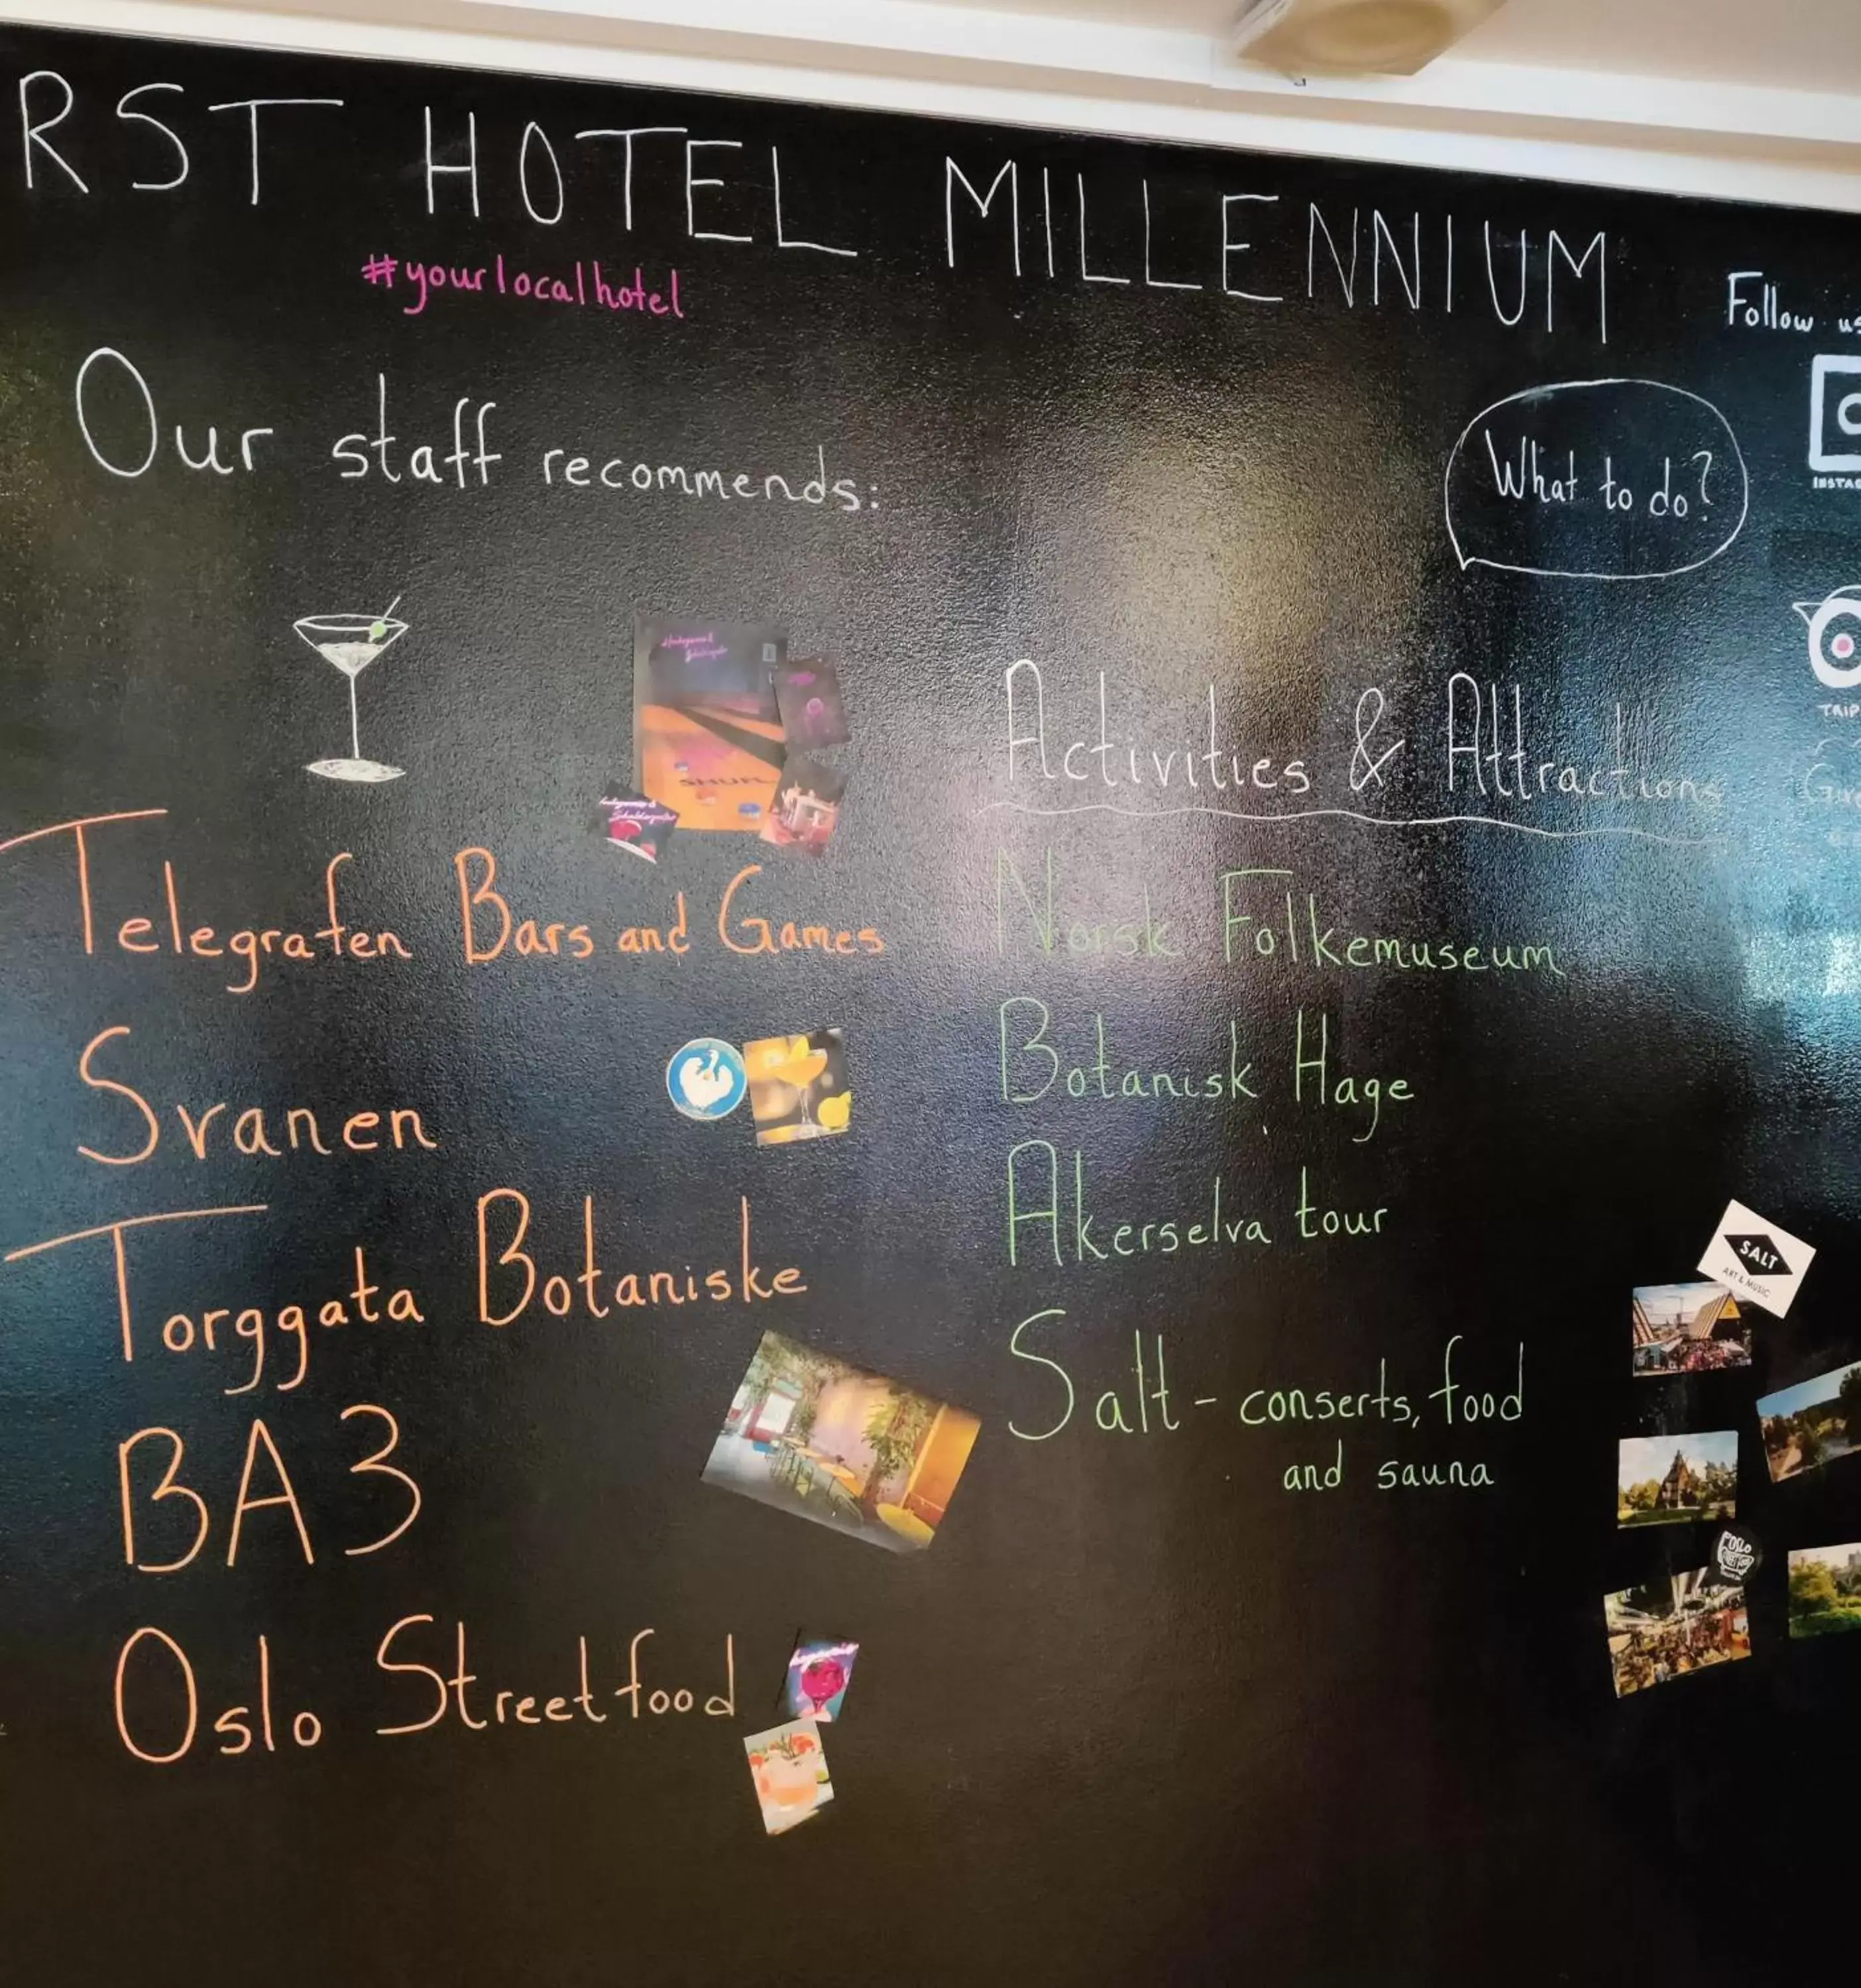 RST HOTEL MILLENNIUM
#yourlocalhotel
Follow us
Our staff recommends:
What to do?
INSTAG
TRIP
SHUF
Activities & Attractions
Telegrafen Bars and Games
Svanen
Torggata Botaniske
BA3
Oslo Streetfood
Norsk Folkemuseum
Botanisk Hage
Akerselva tour
Salt - conserts, food
and sauna
SALT
ART & MUSIC
OSLO